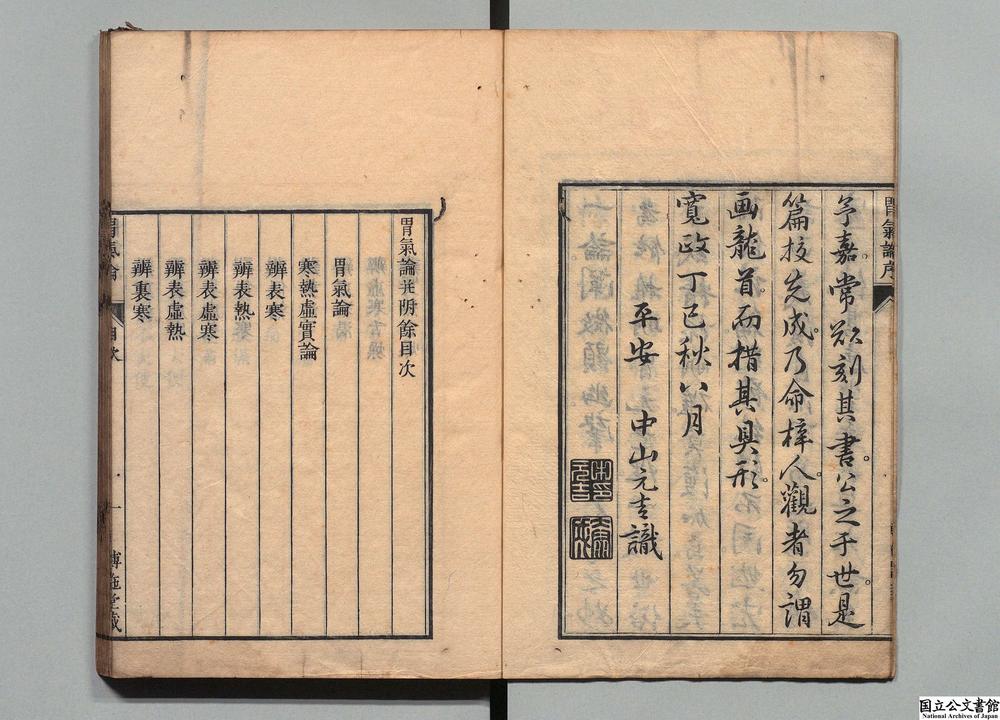 胃氣論序
予嘉。常欲刻其書。公之于世。是
篇校先成。乃命梓人。觀者勿謂
画龍首而措其具形。
寛政丁巳秋八月
平安 中山元吉識
胃氣論并附餘目次
胃氣論
寒熱虛實論
辨表寒
辨表熱
辨表虛寒
辨表虛熱
辨裏寒
胃氣論 目次 一 博施堂藏
国立公文書館
National Archives of Japan